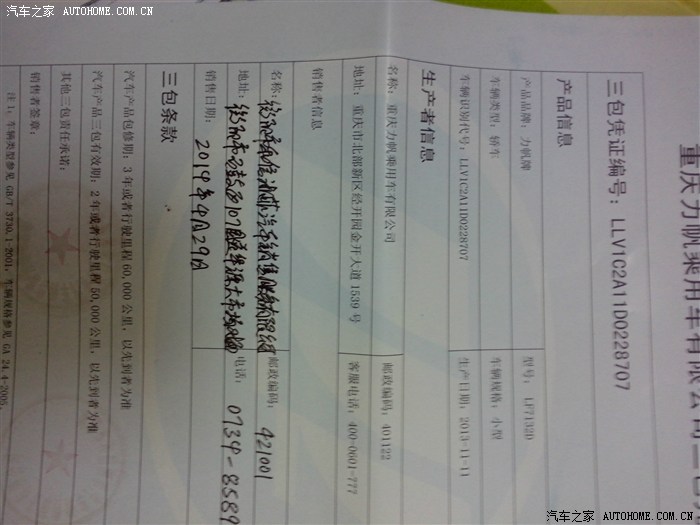 汽车之家 AUTOHOME.COM.CN
重庆力帆乘用车有限公司三包
三包凭证编号：LLV1C2A11D0228707
产品信息
产品品牌：力帆牌 型号：LF7132D
车辆类型：轿车 车辆规格：小型
车辆识别代号：LLV1C2A11D0228707 生产日期：2013-11-11
生产者信息
名称：重庆力帆乘用车有限公司 邮政编码：401122
地址：重庆市北部新区经开园金开大道 1539 号 客服电话：400-0601-777
销售者信息
名称：衡阳市 汽车销售服务有限公司 邮政编码：421001
地址：衡阳市 107国道 大市场 电话：0734-8589
销售日期：2014年4月29日
三包条款
汽车产品包修期：3 年或者行驶里程 60,000 公里，以先到者为准
汽车产品三包有效期：2 年或者行驶里程 50,000 公里，以先到者为准
其他三包责任承诺：
销售者签章：
注 1：车辆类型参见 GB/T 3730.1-2001，车辆规格参见 GA 24.4-2005。
汽车之家 AUTOHOME.COM.CN